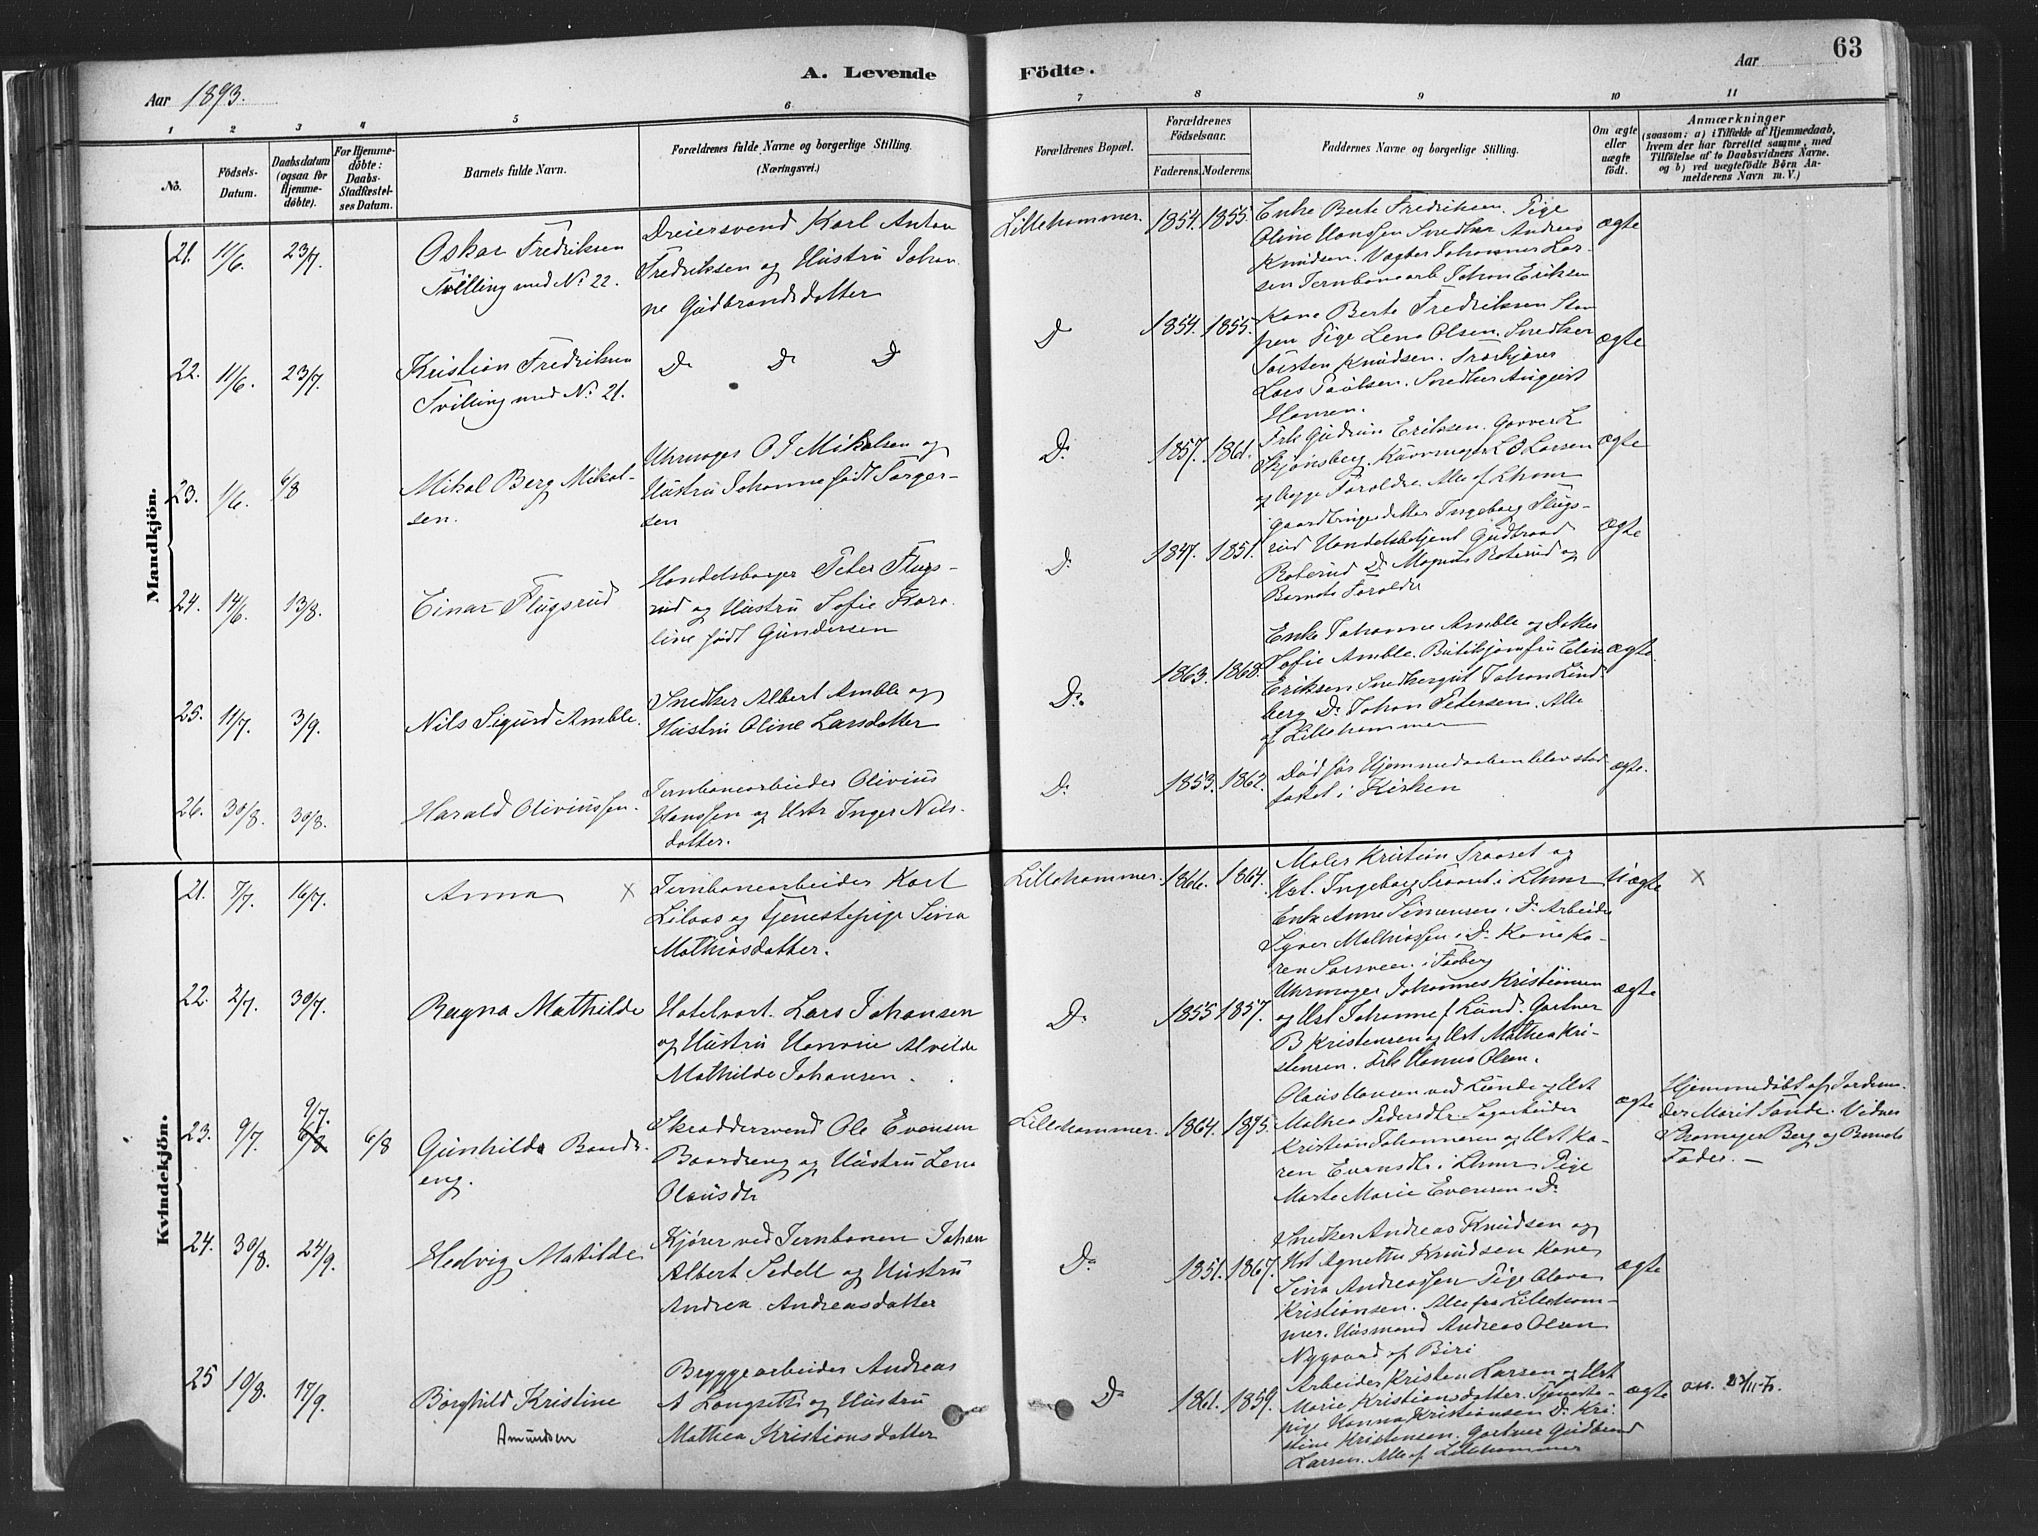 63
A. Levende Födte.
Aar 1893.
Aar
1 2 3 4 5 6 7 8 9 10 11
No.
Födsels-Datum.
Daabsdatum (ogsaa for Hjemme-döbte).
For Hjemme-döbte: Daabs-Stadfæstel-ses Datum.
Barnets fulde Navn.
Forældrenes fulde Navne og borgerlige Stilling.
(Næringsvei.)
Forældrenes Bopæl.
Forældrenes Födselsaar.
Faderens. Moderens.
Faddernes Navne og borgerlige Stilling.
Om ægte eller uægte födt.
Anmærkninger
(saasom: a) i Tilfælde af Hjemmedaab,
hvem der har forrettet samme, med
Tilföielse af to Daabsvidners Navne,
og b) ved uægtefödte Börn An-
melderens Navn m. V.)
Mandkjön.
21. 11/6. 23/7.
Oskar Fredriksen
Tvilling med No 22.
Dreiersvend Karl Anton
Fredriksen og Hustru Johan-
ne Gudbrandsdatter
Lillehammer. 1854. 1855.
Enke Berte Fredriksen. Pige
Oline Hanssen Snedker Andreas
Knudsen. Vægter Johannes Lar-
sen Jernbanearb. Johan Eriksen
ægte
22. 11/6. 23/7.
Kristian Fredriksen
Tvilling med No 21.
Do Do Do
Do 1854. 1855.
Kone Berte Fredriksen
Pige Lena Olsen. Snedker
Torsten Knudsen.
Lars Paulsen. Snedker August
Hansen.
ægte
23. 1/6. 6/8
Mikal Berg Mikal-
sen.
Uhrmager O J Mikalsen og
Hustru Johanne født Torger-
sen
Do 1857. 1861.
Frk Gudrun Eriksen. Garver L
Skjønsberg. L O Larsen
og Begge Forældre. Alle af Lhmr
ægte
24. 14/6. 13/8.
Einar Flugsrud
Handelsborger Peter Flugs-
rud og Hustru Sofie Karo-
line født Gundersen
Do 1847. 1851.
Gaardbrugerdatter Ingeborg Flugs-
rud Handelsbetjent Gudbrand
Roterud Do Magnus Roterud og
Barnets Forældre
ægte
25. 11/7. 3/9.
Nils Sigurd Amble.
Snedker Albert Amble og
Hustru Oline Larsdatter
Do 1863. 1868.
Enke Johanne Amble og Datter
Sofie Amble. Butikjomfru Elin
Eriksen Snedkergut Johan Lind-
berg Do Johan Petersen. Alle
af Lillehammer
ægte.
26. 30/8. 30/8.
Harald Oliviussen.
Jernbanearbeider Olivius
Hanssen og Hstr Inger Nils-
datter.
Do 1853. 1862.
Død før Hjemmedaaben blev stad-
fæstet i Kirken
ægte.
Kvindekjön.
21. 7/7. 16/7.
Anna x
Jernbanearbeider Karl
Lilaas og Tjenestepige Sina
Mathiasdatter.
Lillehammer. 1866. 1864.
Maler Kristian Sraaset og
Hst. Ingeborg Sraaset i Lhmr
Enke Anne Simensen i Do Arbeider
Syver Mathiassen i Do Kone Ka-
ren Sorsveen i Faaberg
Uægte x
22. 2/7. 30/7.
Ragna Mathilde
Hotelvært Lars Johansen
og Hustru Alvilde
Mathilde Johansen.
Do 1855 1857.
Uhrmager Johannes Kristiansen
og Hst Johanne f Lund. Gartner
B Kristensen og Hst Mathea Kri-
stensen. Frk Hanna Olsen.
ægte
23. 9/7. 9/7. 6/8 6/8
Gunhilda Baards-
eng.
Skræddersvend Ole Evensen
Baardseng og Hustru Lena
Olausdtr
Lillehammer. 1864. 1875.
Olaus Hansen ved Lunde og Hst
Mathea Pedersdtr. Sagarbeider
Kristian Johannesen og Hst Ka-
ren Evensdtr i Lhmr Pige
Marte Marie Evensen i Do
ægte
Hjemmedøbt af Jordem-
der Marit Sande. Vidner
Skomager Berg og Barnets
Fader.
24. 30/8. 24/9.
Hedvig Matilde
Kjører ved Jernbanen Johan
Albert Sedell og Hustru
Andrea Andreasdatter
Do 1851. 1867.
Snedker Andreas Knudsen og
Hst Agnethe Knudsen Kone
Sina Andreassen Pige Olava
Kristiansen. Alle fra Lilleham-
mer. Husmand Andreas Olsen
Nygaard af Biri
ægte
25 19/8. 17/9.
Borghild Kristine
Amundsen
Bryggearbeider Andreas
A Longsetti og Hustru
Mathea Kristiansdatter
Do 1861. 1859.
Arbeider Kristen Larsen og Hst
Marie Kristiansdatter. Tjeneste-
pige Hanna Kristiansen Do Kri-
stine Kristensen. Gartner Gudbrand
Larsen. Alle af Lillehammer
ægte